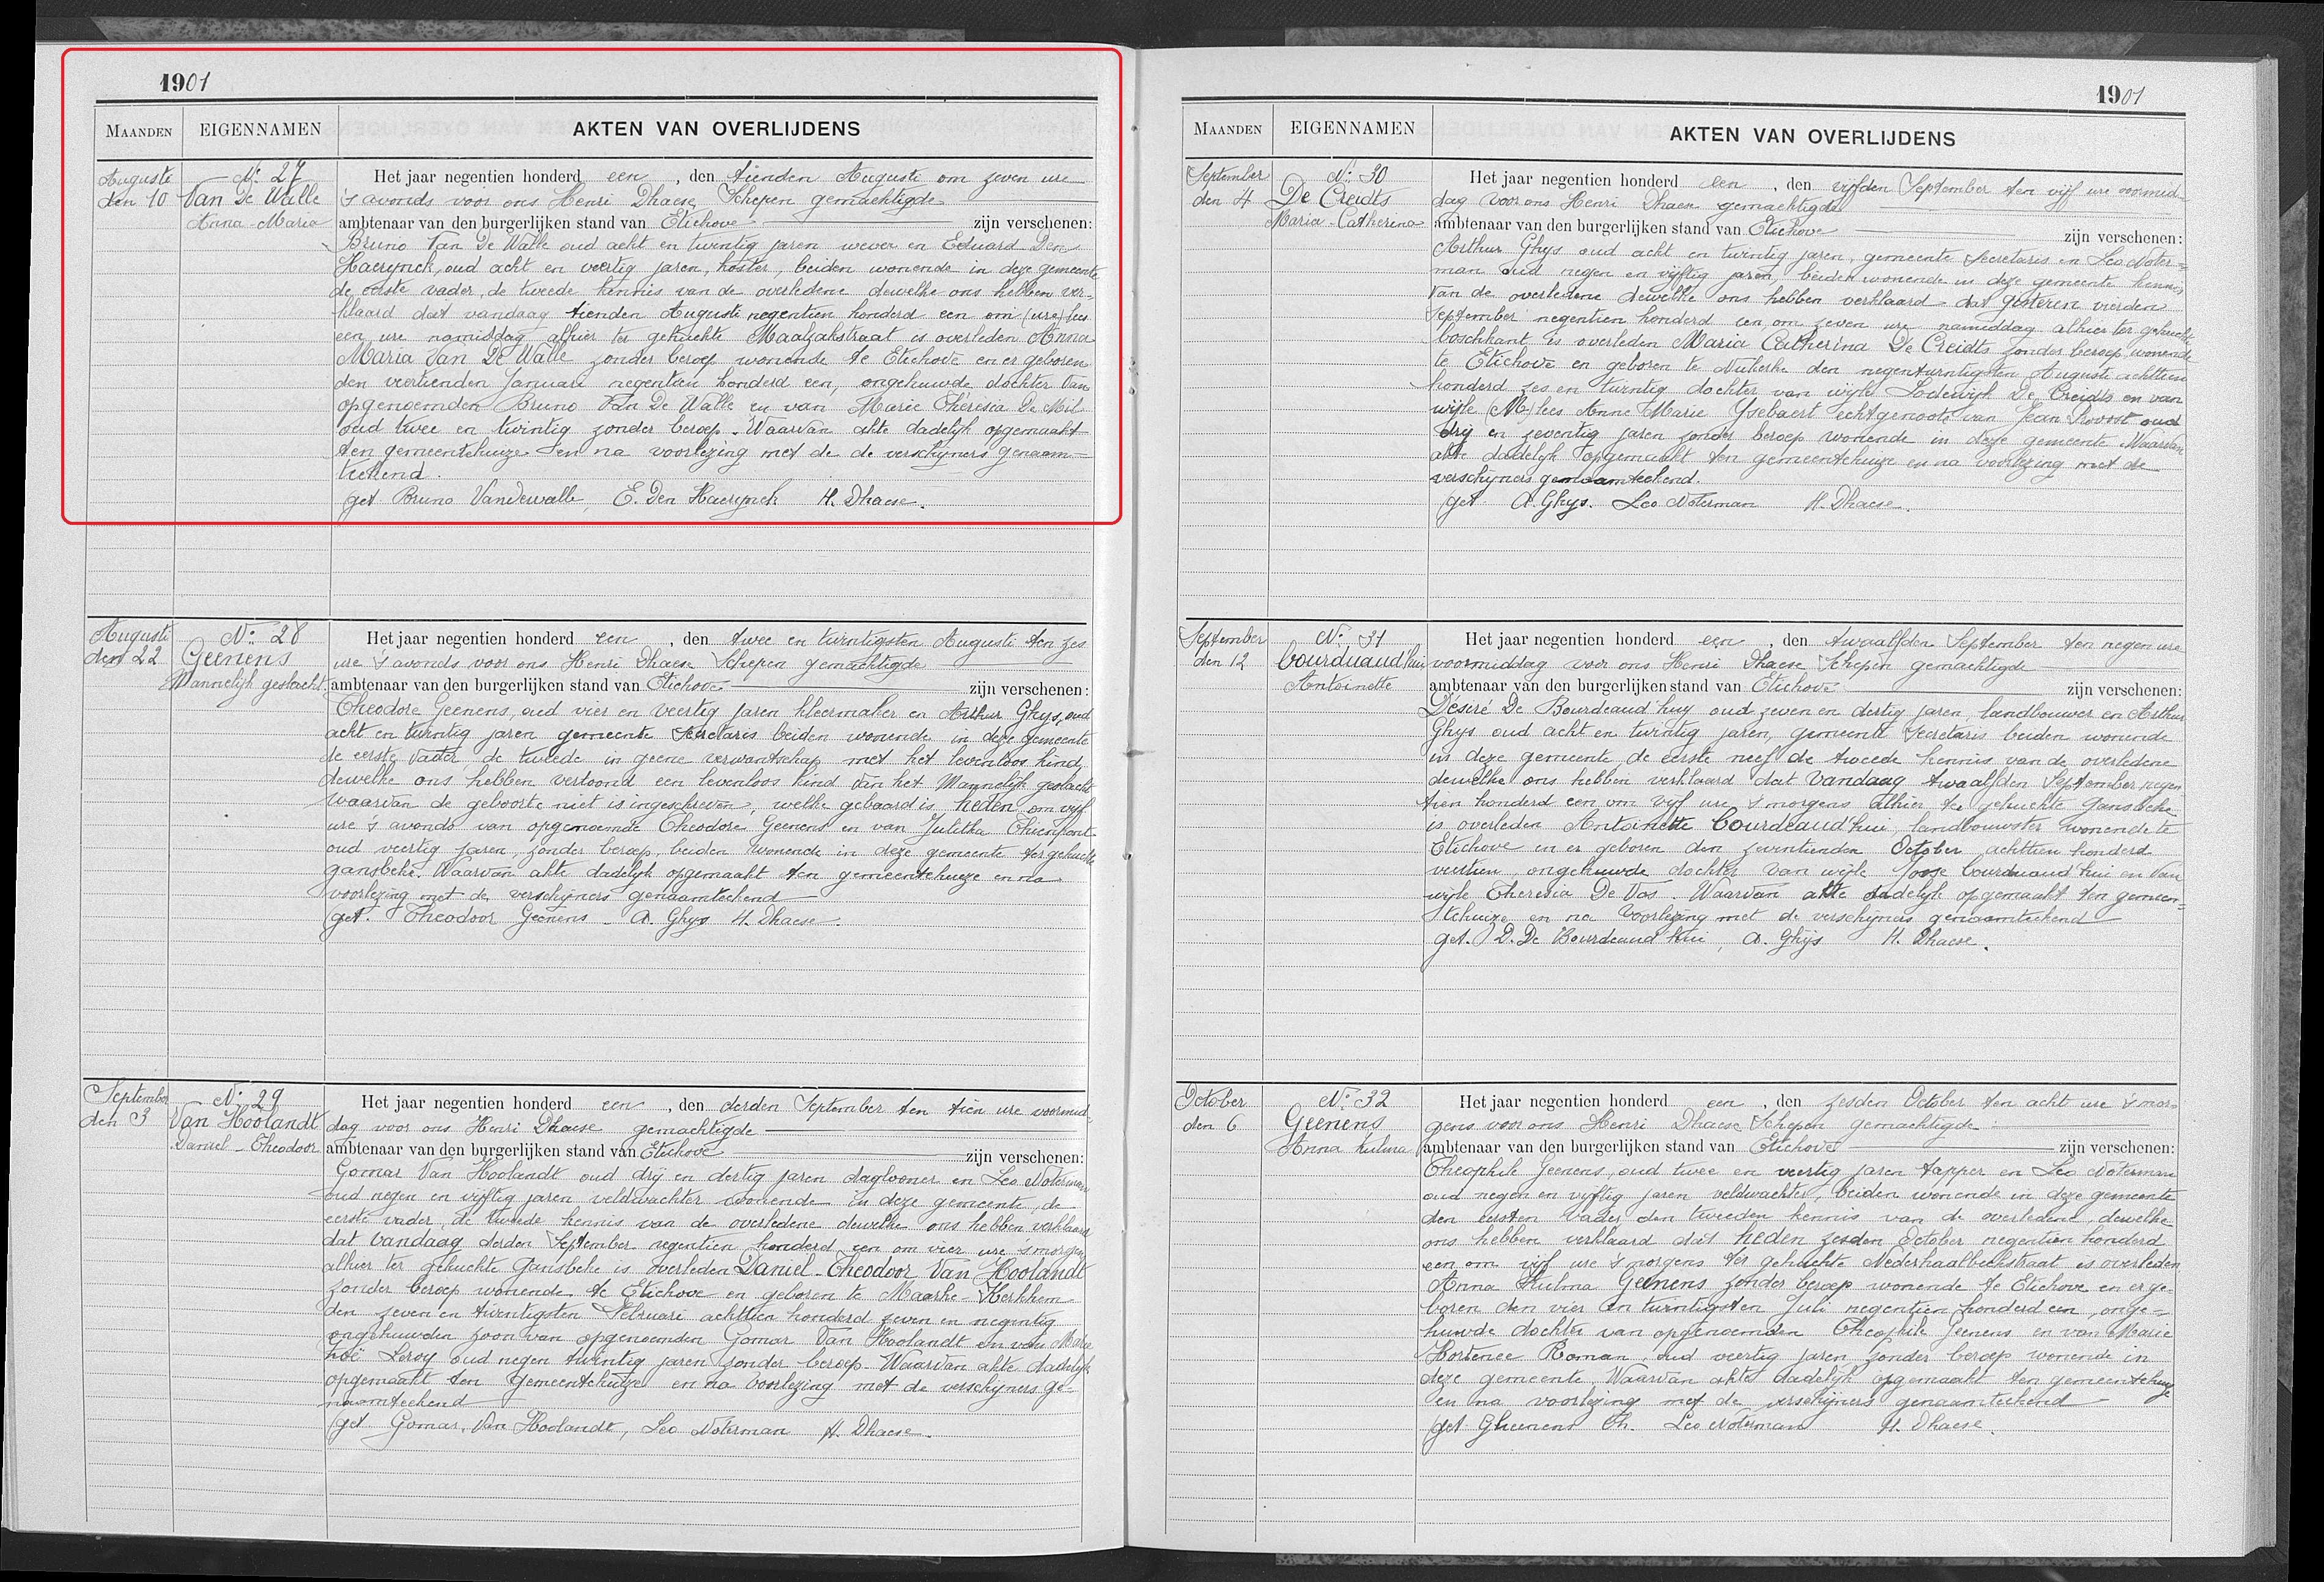 1901
MAANDEN EIGENNAMEN AKTEN VAN OVERLIJDENS
Auguste den 10
N: 27
Van De Walle
Anna-Maria
Het jaar negentien honderd een, den tienden Augusti om zeven ure
's avonds voor ons Henri Dhaese Schepen gemachtigde
ambtenaar van den burgerlijken stand van Etichove zijn verschenen:
Bruno Van De Walle oud acht en twintig jaren wever en Eduard Den
Haerynck, oud acht en veertig jaren, koster, beiden wonende in deze gemeente
de eerste vader, de tweede kennis van de overledene dewelke ons hebben ver-
klaard dat vandaag tienden Augusti negentien honderd een om (ure) lees
een ure namiddag alhier ter gehuchte Maalzakstraat is overleden Anna
Maria Van De Walle zonder beroep wonende te Etichove en er geboren
den veertienden Januari negentien honderd een, ongehuwde dochter van
opgenoemden Bruno Van De Walle en van Marie Theresia De Mil
oud twee en twintig zonder beroep. Waarvan akte dadelijk opgemaakt
ten gemeentehuize en na voorlezing met de de verschijners genaam=
teekend.
get Bruno Vandewalle, E. Den Haerynck H. Dhaese.
Augusti
den 22
N: 28
Geenens
Mannelijk geslacht
Het jaar negentien honderd een, den twee en twintigsten Augusti ten zes
ure 's avonds voor ons Henri Dhaese Schepen gemachtigde
ambtenaar van den burgerlijken stand van Etichove zijn verschenen:
Theodore Geenens, oud vier en veertig jaren kleermaker en Arthur Ghys, oud
acht en twintig jaren gemeente secretaris beiden wonende in deze gemeente
de eerste vader, de tweede in geene verwantschap met het levenloos kind,
dewelke ons hebben vertoond een levenloos kind van het Mannelijk geslacht
waarvan de geboorte niet is ingeschreven, welke gebaard is heden om vijf
ure 's avonds van opgenoemde Theodore Geenens en van Julitha Thienpont
oud veertig jaren, zonder beroep, beiden wonende in deze gemeente ter gehuchte
gansbeke. Waarvan akte dadelijk opgemaakt ten gemeentehuize en na
voorlezing met de verschijners genaamteekend
get. Theodoor Geenens A. Ghys H. Dhaese.
September
den 3
N: 29
Van Hoolandt
Daniel-Theodoor
Het jaar negentien honderd een, den derden September ten tien ure voormid
dag voor ons Henri Dhaese gemachtigde
ambtenaar van den burgerlijken stand van Etichove zijn verschenen:
Gomar Van Hoolandt oud drij en dertig jaren daglooner en Leo Noterman
oud negen en vijftig jaren veldwachter wonende in deze gemeente, de
eerste vader, de tweede kennis van de overledene dewelke ons hebben verklaard
dat vandaag derden September negentien honderd een om vier ure 's morgens
alhier ter gehuchte Gansbeke is overleden Daniel-Theodoor Van Hoolandt
zonder beroep wonende te Etichove en geboren te Maarke-Kerkhem
den zeven en twintigsten Februari achttien honderd zeven en negentig
ongehuwden zoon van opgenoemden Gomar Van Hoolandt en van Marie
Leroy oud negen twintig jaren zonder beroep. Waarvan akte dadelijk
opgemaakt ten gemeentehuize en na voorlezing met de verschijners ge-
naamteekend
get Gomar Van Hoolandt, Leo Noterman H. Dhaese.
1901
MAANDEN EIGENNAMEN AKTEN VAN OVERLIJDENS
September
den 4
N: 30
De Creidts
Maria-Catherina
Het jaar negentien honderd een, den vijfden September ten vijf ure voormid=
dag voor ons Henri Dhaen gemachtigde
ambtenaar van den burgerlijken stand van Etichove zijn verschenen:
Arthur Ghys oud acht en twintig jaren, gemeente secretaris en Leo Noter=
man oud negen en vijftig jaren, beiden wonende in deze gemeente kennis
van de overledene dewelke ons hebben verklaard dat gisteren vierden
September negentien honderd een, om zeven ure namiddag alhier ter gehuchte
boschkant is overleden Maria Catherina De Creidts zonder beroep wonende
te Etichove en geboren te Nukerke den negenturntigsten Augusti achttien
honderd zes en twintig dochter van wijle Lodewijk De Creidts en van
wijle (M) lees Anne Marie Ysebaert echtgenoote van Jean Provost oud
drij en zeventig jaren zonder beroep wonende in deze gemeente Waarvan
akte dadelijk opgemaakt ten gemeentehuize en na voorlezing met de
verschijners genaamteekend.
get A. Ghys. Leo Noterman H. Dhaese.
September
den 12
N: 31
Courdeaud'hui
Antoinette
Het jaar negentien honderd een, den twaalfden September ten negen ure
voormiddag voor ons Henri Dhaese Schepen gemachtigde
ambtenaar van den burgerlijken stand van Etichove zijn verschenen:
Désiré De Bourdeaud'huy oud zeven en dertig jaren, landbouwer en Arthur
Ghys oud acht en twintig jaren, gemeente secretaris beiden wonende
in deze gemeente, de eerste neef de tweede kennis van de overledene
dewelke ons hebben verklaard dat vandaag twaalfden September negen
tien honderd een om vijf ure 's morgens alhier ter gehuchte Gansbeke
is overleden Antoinette Courdeaud'hui, landbouwster wonende te
Etichove en er geboren den zeventienden October achttien honderd
veertien, ongehuwde dochter van wijle Joose Courdeaud'hui en van
wijle Theresia De Vos. Waarvan akte dadelijk opgemaakt ten gemeen=
tehuize en na voorlezing met de verschijners genaamteekend
get. D. De Bourdeaud'hui, A. Ghijs H. Dhaese.
October
den 6
N: 32
Geenens
Anna Kulma
Het jaar negentien honderd een, den zesden October ten acht ure 's mor-
gens voor ons Henri Dhaese Schepen gemachtigde
ambtenaar van den burgerlijken stand van Etichove zijn verschenen:
Theophile Geenens, oud twee en veertig jaren tapper en Leo Noterman
oud negen en vijftig jaren veldwachter, beiden wonende in deze gemeente
den eersten vader den tweeden kennis van de overledene, dewelke
ons hebben verklaard dat heden zesden October negentien honderd
een om vijf ure 's morgens ter gehuchte Nederhaalbeekstraat is overleden
Anna Kulma Geenens zonder beroep wonende te Etichove en er ge-
boren den vier en twintigsten Juli negentien honderd een, onge=
huwde dochter van opgenoemden Theophile Geenens en van Marie
Hortence Roman, oud veertig jaren zonder beroep wonende in
deze gemeente, Waarvan akte dadelijk opgemaakt ten gemeentehuize
en na voorlezing met de verschijners genaamteekend
get Gheenens Th. Leo Noterman H. Dhaese.